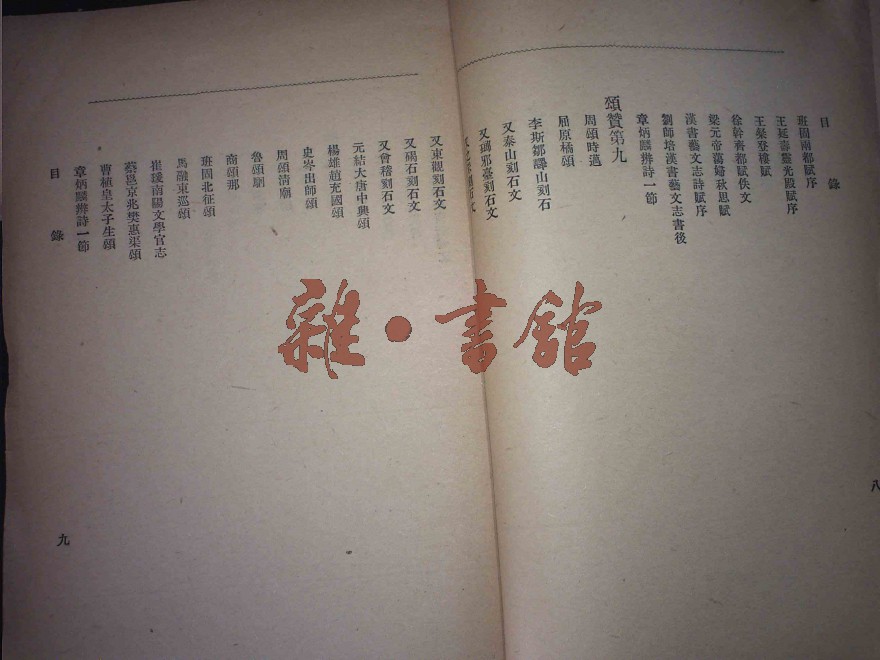 目錄
班固兩都賦序
王延壽靈光殿賦序
王粲登樓賦
徐幹齊都賦佚文
梁元帝蕩婦秋思賦
漢書藝文志詩賦序
劉師培漢書藝文志書後
章炳麟辨詩一節
頌贊第九
周頌時邁
屈原橘頌
李斯鄒嶧山刻石
又泰山刻石文
又瑯邪臺刻石文
刻石文
八
又東觀刻石文
又碣石刻石文
又會稽刻石文
元結大唐中興頌
楊雄趙充國頌
史岑出師頌
周頌清廟
魯頌駉
商頌那
班固北征頌
馬融東巡頌
崔瑗南陽文學官志
蔡邕京兆樊惠渠頌
曹植皇太子生頌
章炳麟辨詩一節
目錄
九
雜·書館